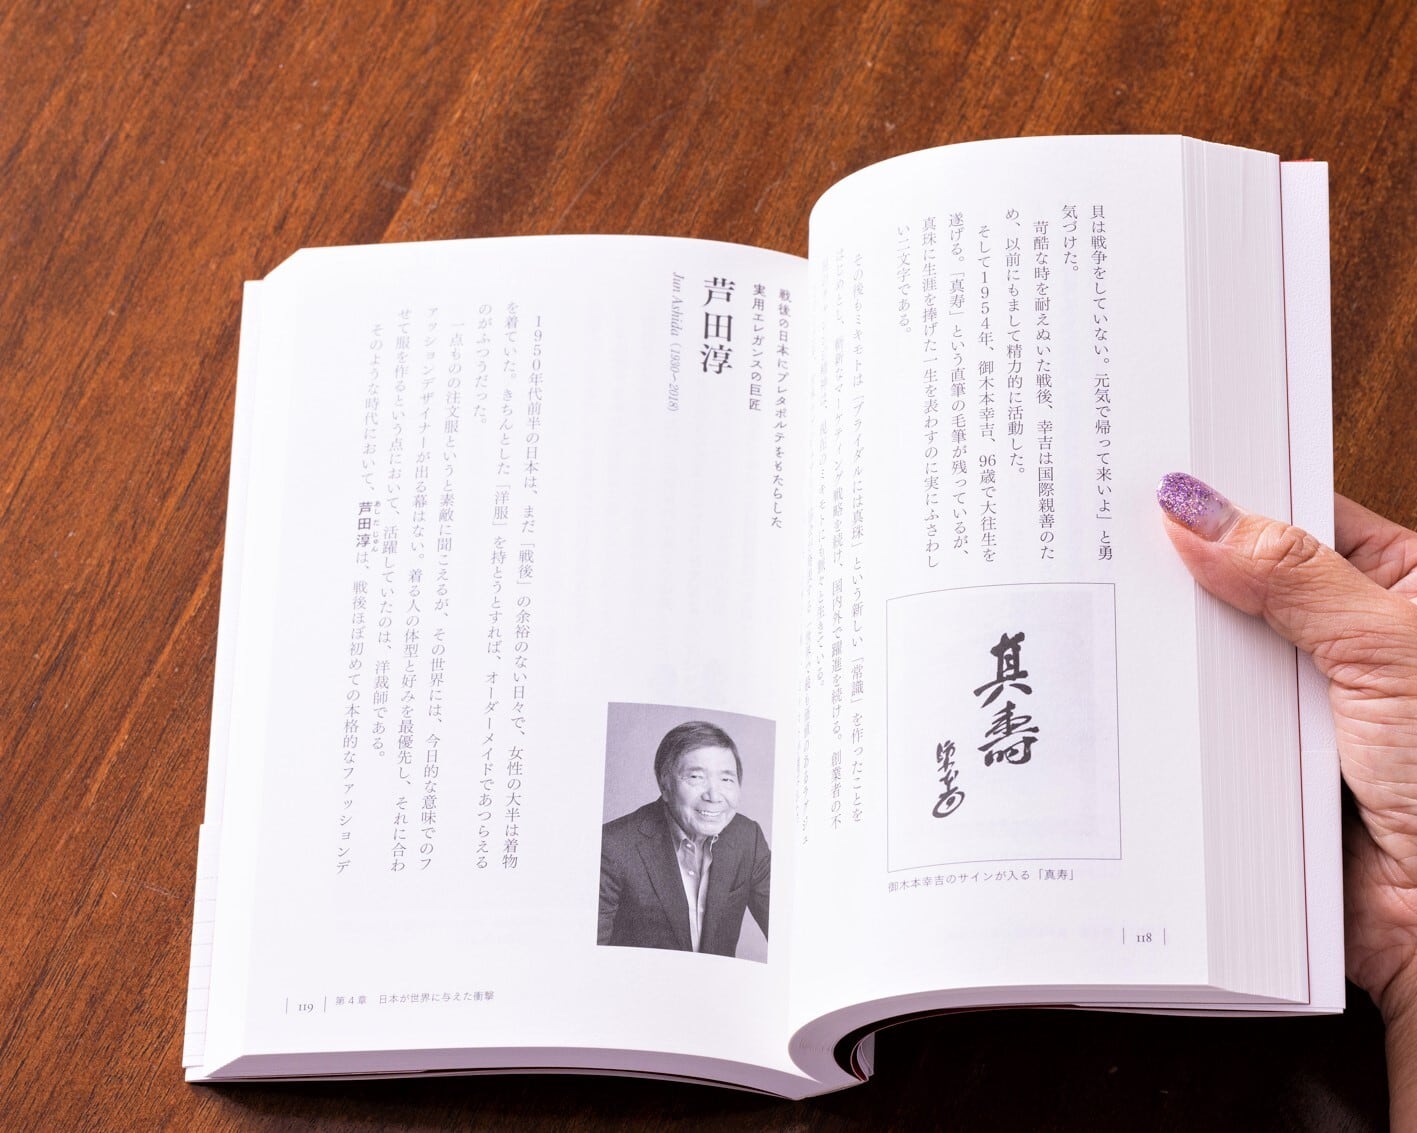 貝は戦争をしていない。元気で帰って来いよ」と勇
気づけた。
苛酷な時を耐えぬいた戦後、幸吉は国際親善のた
め、以前にもまして精力的に活動した。
そして1954年、御木本幸吉、96歳で大往生を
遂げる。「真寿」という直筆の毛筆が残っているが、
真珠に生涯を捧げた一生を表わすのに実にふさわし
い二文字である。
その後もミキモトは「ブライダルには真珠」という新しい「常識」を作ったことを
はじめとし、斬新なマーケティング戦略を続け、国内外で躍進を続ける。創業者の不
真壽
御木本幸吉のサインが入る「真寿」
118
戦後の日本にプレタポルテをもたらした
実用エレガンスの巨匠
芦田淳
Jun Ashida（1930〜2018）
1950年代前半の日本は、まだ「戦後」の余裕のない日々で、女性の大半は着物
を着ていた。きちんとした「洋服」を持とうとすれば、オーダーメイドであつらえる
のがふつうだった。
一点ものの注文服というと素敵に聞こえるが、その世界には、今日的な意味でのフ
ァッションデザイナーが出る幕はない。着る人の体型と好みを最優先し、それに合わ
せて服を作るという点において、活躍していたのは、洋裁師である。
そのような時代において、芦田淳は、戦後ほぼ初めての本格的なファッションデ
あしだじゅん
119
第4章 日本が世界に与えた衝撃